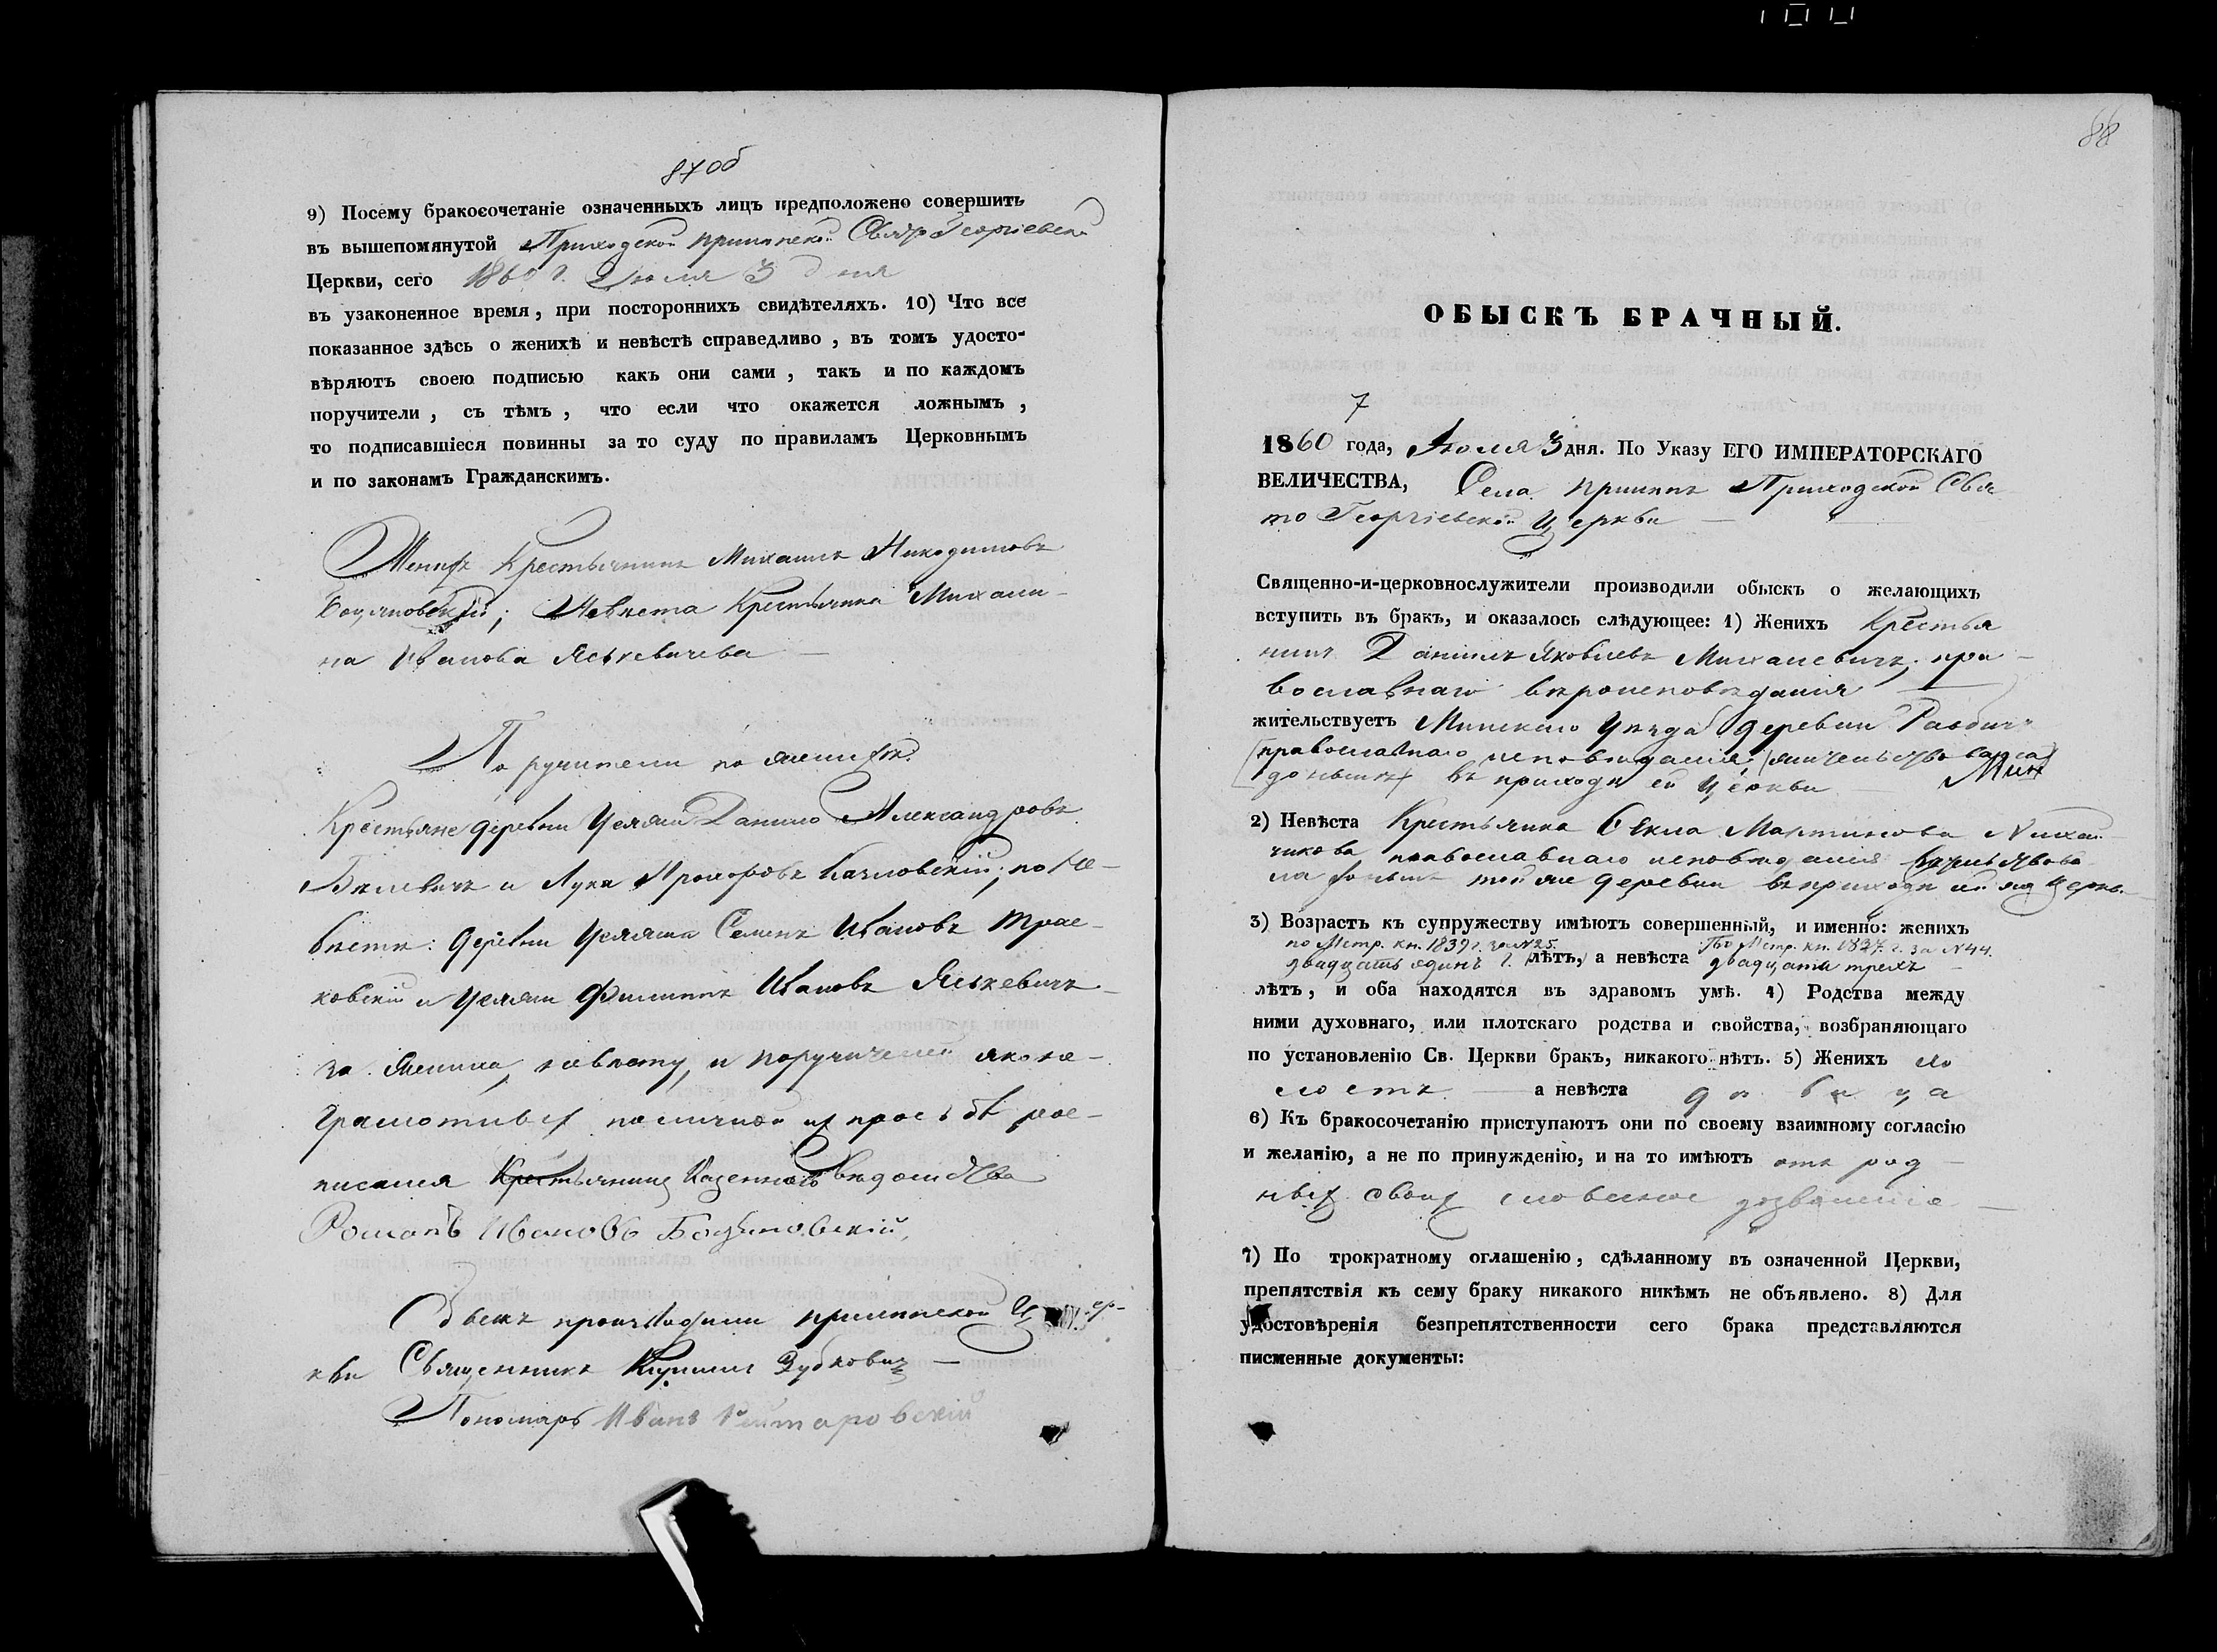 87об
9) Посему бракосочетаніе означенныхъ лицъ предположено совершить
въ вышепомянутой Приходской
Церкви, сего 1860 г. Іюля 3 дня
въ узаконенное время, при постороннихъ свидѣтеляхъ. 10) Что все
показанное здѣсь о женихѣ и невѣстѣ справедливо, въ томъ удосто-
вѣряютъ своею подписью какъ они сами, такъ и по каждомъ
поручители, съ тѣмъ, что если что окажется ложнымъ,
то подписавшіеся повинны за то суду по правиламъ Церковнымъ
и по законамъ Гражданскимъ.
Женихъ Крестьянинъ Михаилъ Никодимовъ
Боцяновскій; Невѣста Крестьянка Михали-
на Иванова Яськевичева
Поручители по женихѣ
Крестьяне деревни Данило Александровъ
и Лука Прохоровъ по Не-
вѣстѣ: деревни Семенъ Ивановъ
ковскій и Филиппъ Ивановъ Яськевичъ
за Жениха, невѣсту, и поручителей яко не-
грамотныхъ по личной их прозьбѣ рос-
писался Крестьянинъ Казеннаго вѣдомства
Романъ Ивановъ Боцяновскій
Обыскъ производили Цер-
кви Священникъ Кириллъ Зубковичъ
Пономарь Иванъ
88
ОБЫСКЪ БРАЧНЫЙ.
7
1860 года, Іюля 3 дня. По Указу ЕГО ИМПЕРАТОРСКАГО
ВЕЛИЧЕСТВА, Села Приходской Свя
то Георгіевской Церкви
Священно-и-церковнослужители производили обыскъ о желающихъ
вступить въ бракъ, и оказалось слѣдующее: 1) Женихъ Крестья
нинъ Даніилъ Яковлевъ Михалевичъ, пра-
вославнаго вѣроисповѣданія
жительствуетъ Минскаго Уѣзда деревни
православнаго исповѣданія, жительствовалъ
донынѣ въ приходѣ сей Церкви
2) Невѣста Крестьянка Ѳекла Мартинова
православнаго исповѣданія жительствова
ла донынѣ той же деревни въ приходѣ сей же Церкв.
3) Возрастъ къ супружеству имѣютъ совершенный, и именно: женихъ
по Метр. кн. 1839 г. за №25. По Метр. кн. 1837 г. за №44.
двадцать одинъ г. лѣтъ, а невѣста двадцати трехъ
лѣтъ, и оба находятся въ здравомъ умѣ. 4) Родства между
ними духовнаго, или плотскаго родства и свойства, возбраняющаго
по установленію Св. Церкви бракъ, никакого нѣтъ. 5) Женихъ хо
лостъ а невѣста дѣвица
6) Къ бракосочетанію приступаютъ они по своему взаимному согласію
и желанію, а не по принужденію, и на то имѣютъ отъ род
ныхъ своихъ словесное дозволеніе
7) По трократному оглашенію, сдѣланному въ означенной Церкви,
препятствія къ сему браку никакого никѣмъ не объявлено. 8) Для
удостовѣренія безпрепятственности сего брака представляются
писменные документы: